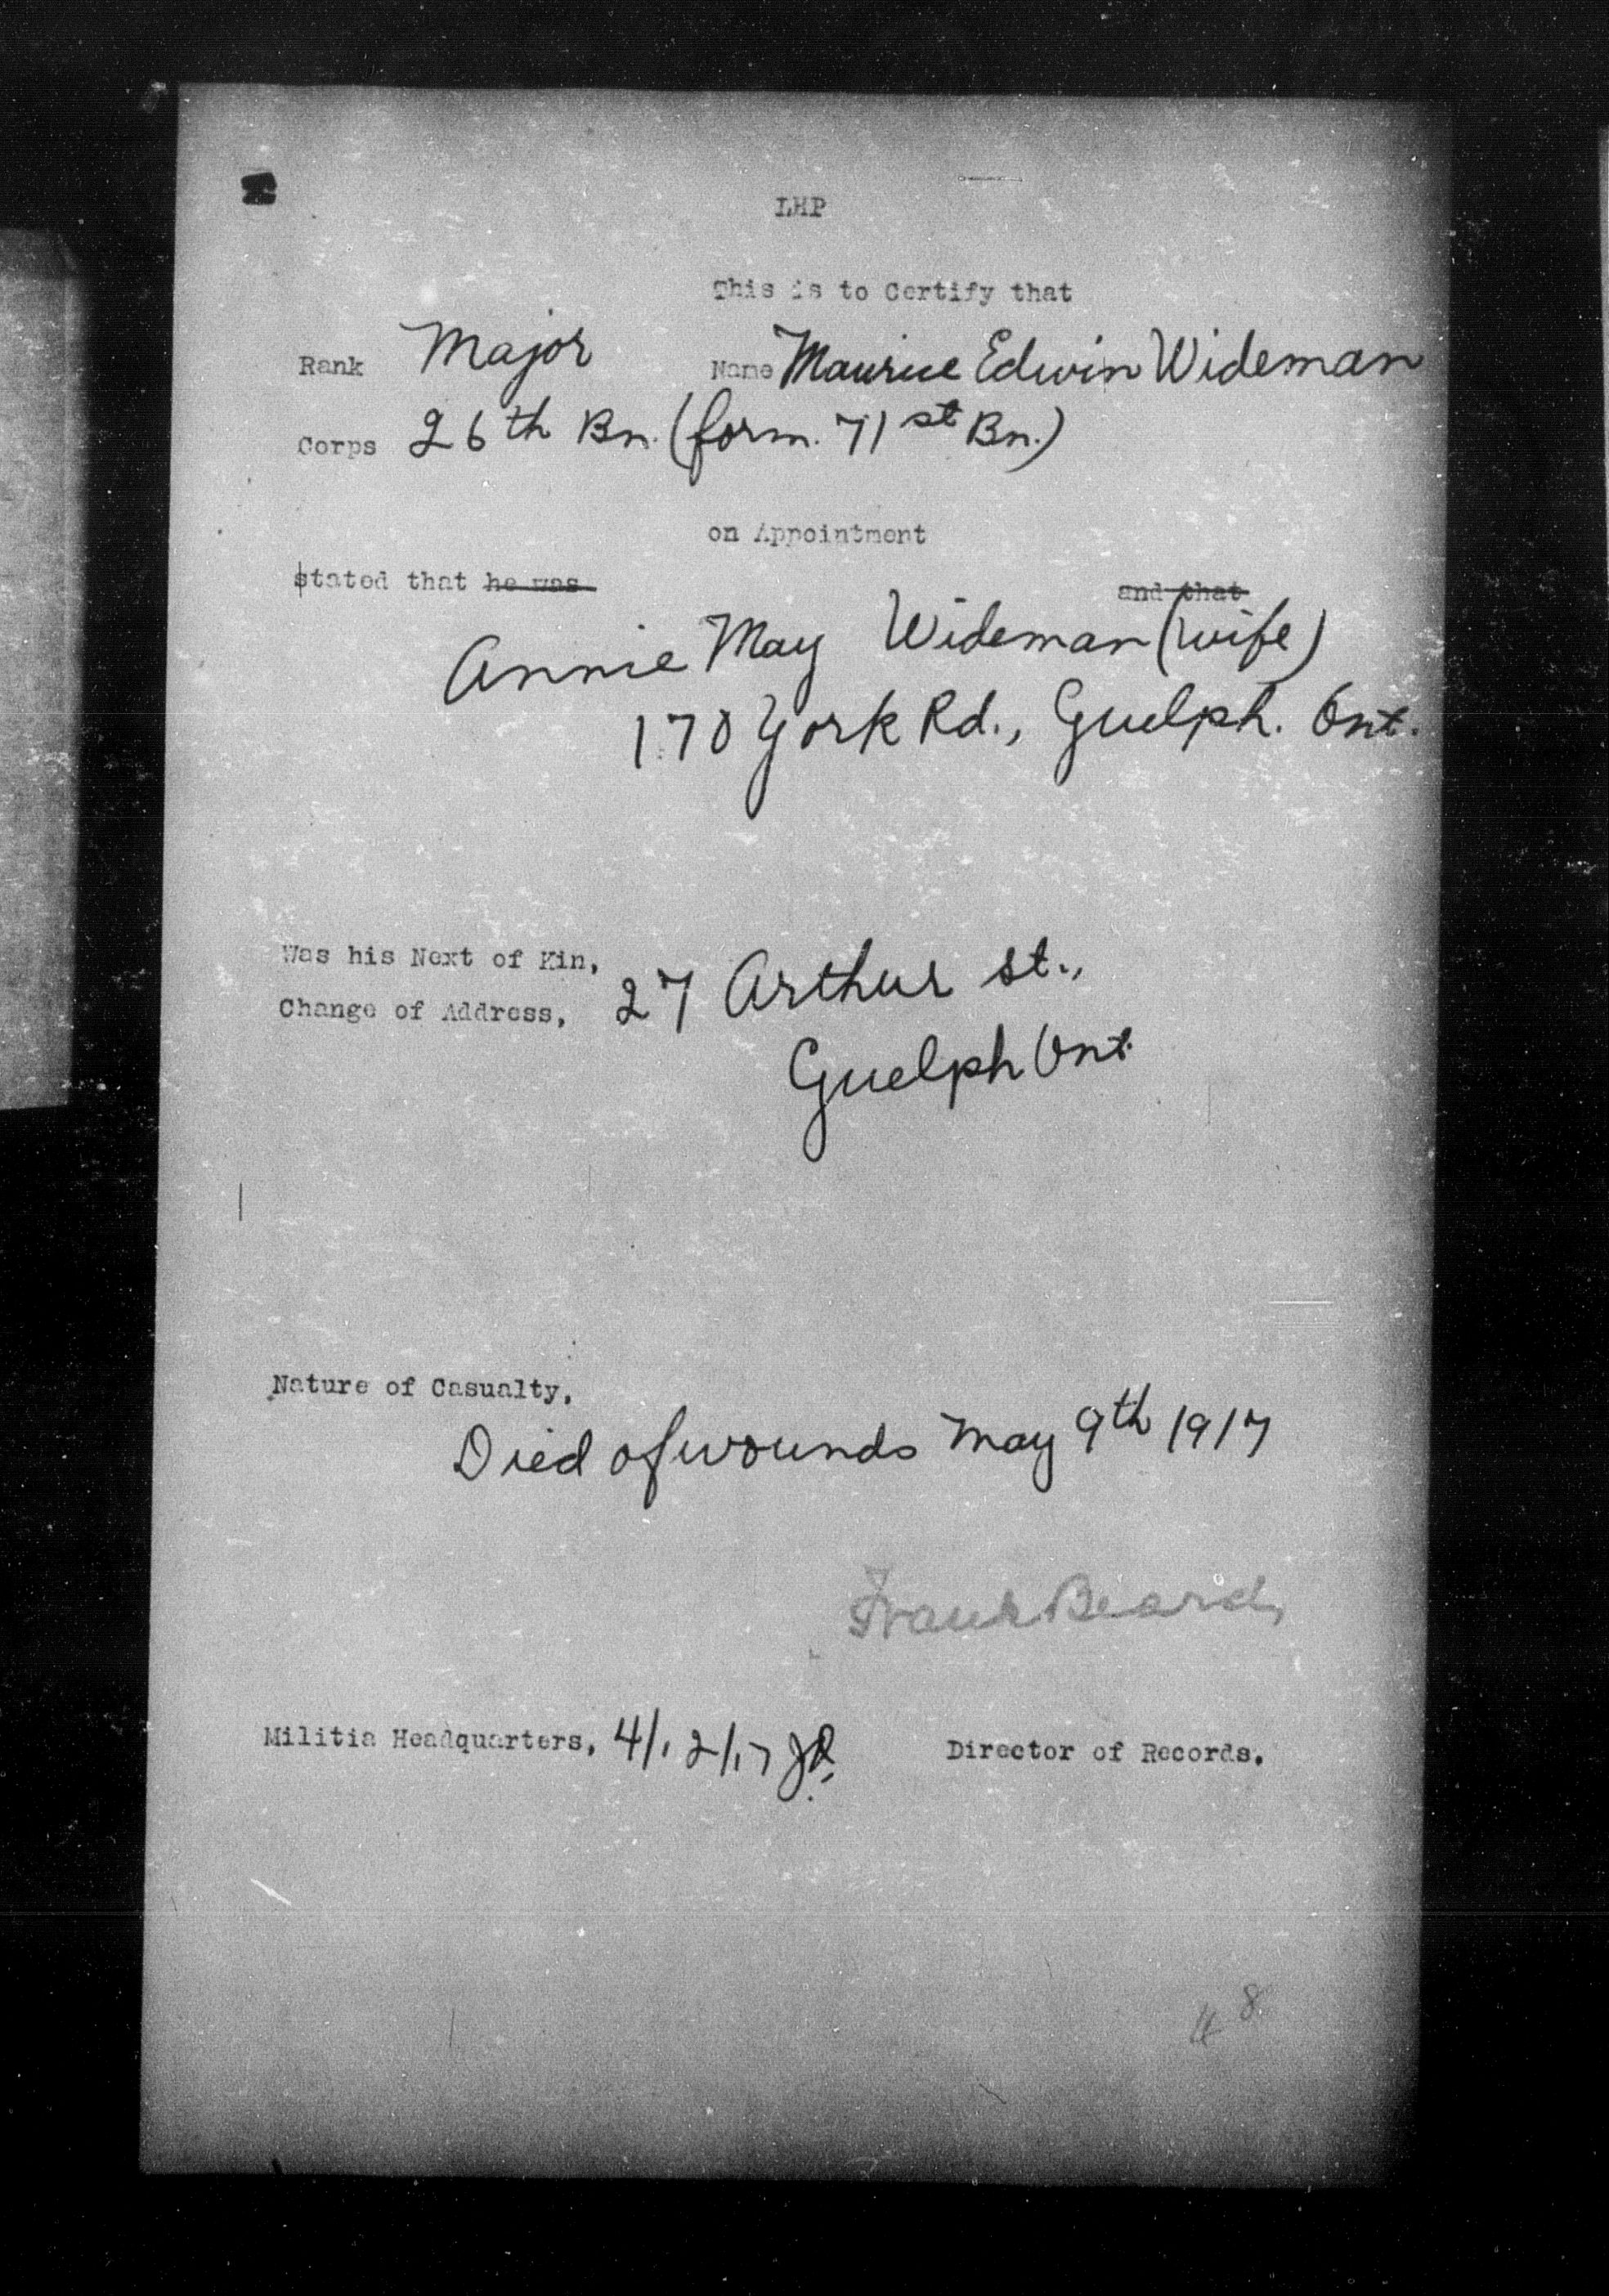 LHP
This is to Certify that
Rank Major Name Maurice Edwin Wideman
Corps 26th Bn. (form. 71st Bn.)
on Appointment
stated that he was and that
Annie May Wideman (wife)
170 York Rd., Guelph. Ont.
Was his Next of Kin,
Change of Address, 27 Arthur st.,
Guelph Ont.
Nature of Casualty,
Died of wounds May 9th 1917
Frank Beard,
Militia Headquarters, 4/12/17 Director of Records.
48